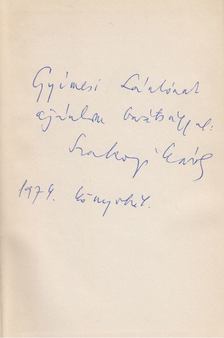 Gyimesi Lászlónak
ajánlom barátsággal:
Szakonyi Károly
1974. könyvhét.